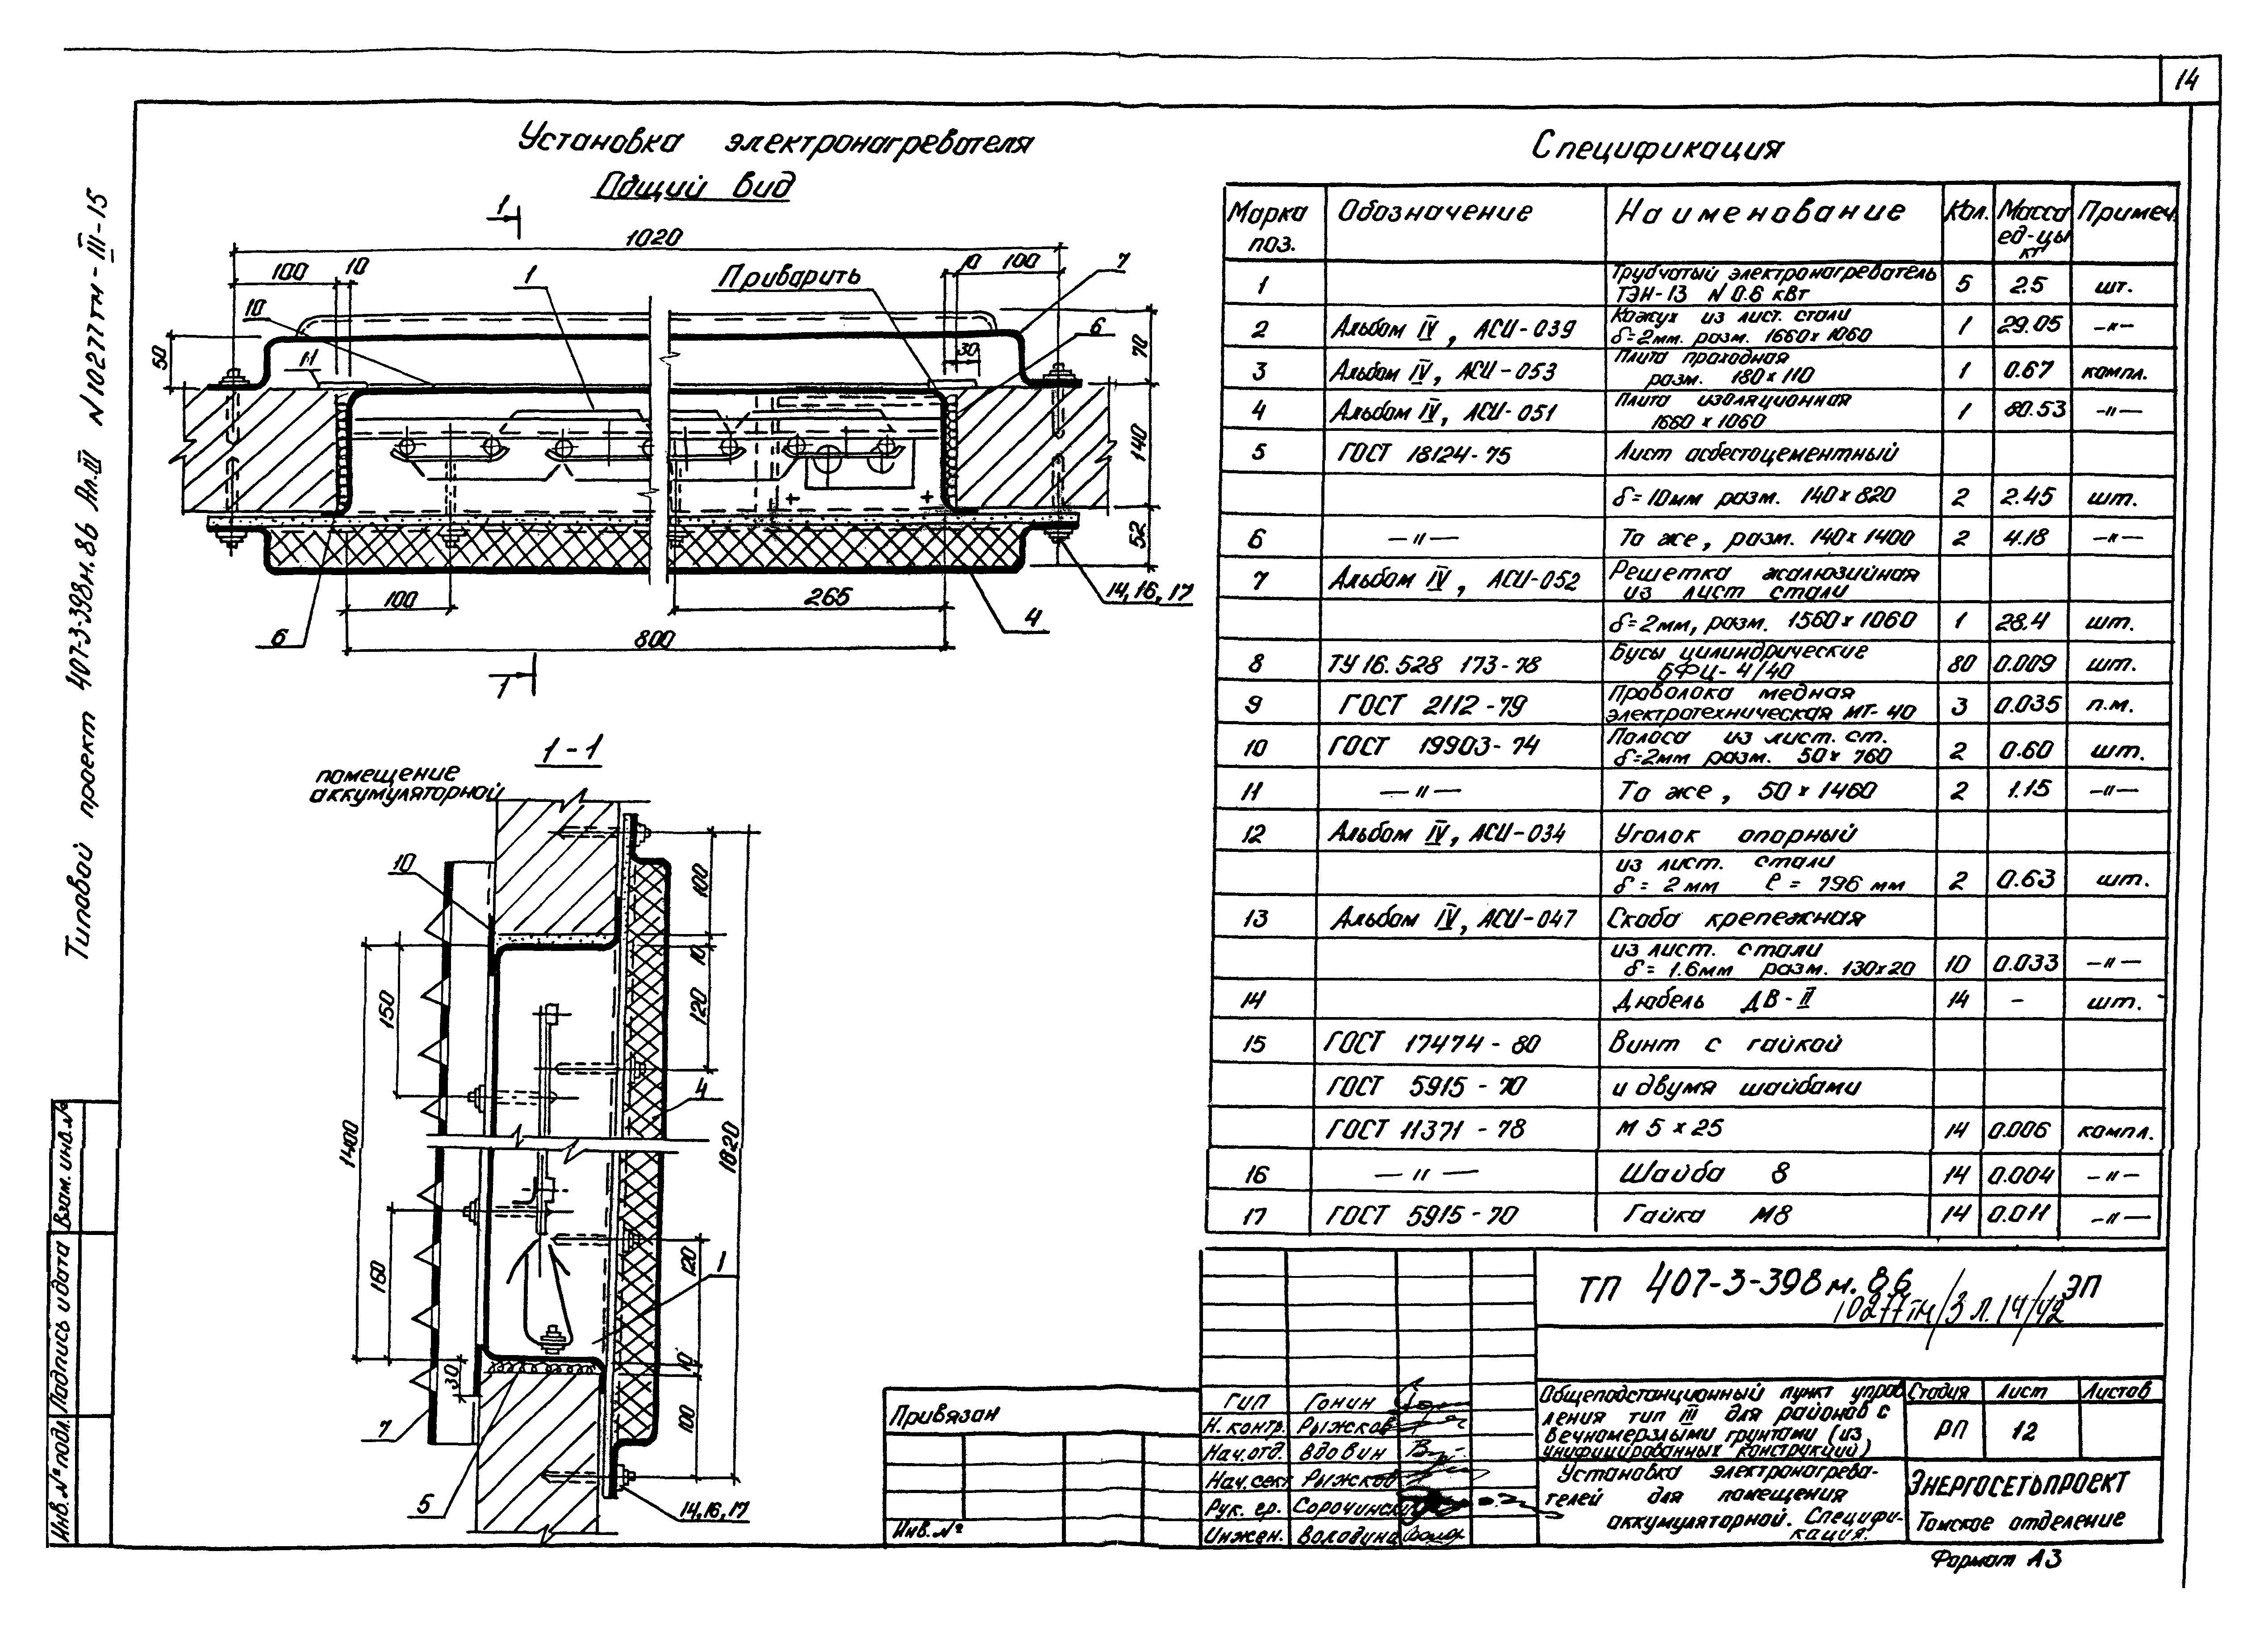 14
Типовой проект 407-3-398м.86 Ал.III N10277тм-III-15
Установка электронагревателя
Общий вид
1
1020
100
10
1
Приварить
10
100
7
10
6
30
50
11
70
140
52
100
265
14,16,17
6
800
4
1
1-1
помещение
аккумуляторной
10
100
10
150
120
4
1400
1820
160
120
1
30
10
100
7
5
14,16,17
Спецификация
Марка поз. Обозначение Наименование Кол. Масса ед-цы кг Примеч.
1 Трубчатый электронагреватель
ТЭН-13 N 0.6 кВт 5 2.5 шт.
2 Альбом IV, АСИ-039 Кожух из лист. стали
δ=2мм. разм. 1660х1060 1 29.05 —"—
3 Альбом IV, АСИ-053 Плита проходная
разм. 180х110 1 0.67 компл.
4 Альбом IV, АСИ-051 Плита изоляционная
1660х1060 1 80.53 —"—
5 ГОСТ 18124-75 Лист асбестоцементный
δ=10мм разм. 140х820 2 2.45 шт.
6 —"— То же, разм. 140х1400 2 4.18 —"—
7 Альбом IV, АСИ-052 Решетка жалюзийная
из лист стали
δ=2мм, разм. 1560х1060 1 28.4 шт.
8 ТУ16.528 173-78 Бусы цилиндрические
БФЦ-4/40 80 0.009 шт.
9 ГОСТ 2112-79 Проволока медная
электротехническая МТ-40 3 0.035 п.м.
10 ГОСТ 19903-74 Полоса из лист. ст.
δ=2мм разм. 50х760 2 0.60 шт.
11 —"— То же, 50х1460 2 1.15 —"—
12 Альбом IV, АСИ-034 Уголок опорный
из лист. стали
δ = 2мм ℓ = 796 мм 2 0.63 шт.
13 Альбом IV, АСИ-047 Скоба крепежная
из лист. стали
δ= 1.6мм разм. 130х20 10 0.033 —"—
14 Дюбель ДВ-II 14 - шт.
15 ГОСТ 17474-80 Винт с гайкой
ГОСТ 5915-70 и двумя шайбами
ГОСТ 11371-78 М 5х25 14 0.006 компл.
16 —"— Шайба 8 14 0.004 —"—
17 ГОСТ 5915-70 Гайка М8 14 0.011 —"—
ТП 407-3-398м.86 ЭП
10277тм/3 л.14/42
Общеподстанционный пункт управ
ления тип III для районов с
вечномерзлыми грунтами (из
унифицированных конструкций)
Стадия Лист Листов
РП 12
Установка электронагрева-
телей для помещения
аккумуляторной. Специфи-
кация.
ЭНЕРГОСЕТЬПРОЕКТ
Томское отделение
ГИП Гонин
Н.контр. Рыжков
Нач.отд. Вдовин
Нач.сект Рыжков
Рук. гр. Сорочинский
Инжен. Володина
Привязан
Инв.№
Взам. инв.№
Подпись и дата
Инв.№ подл.
Формат А3